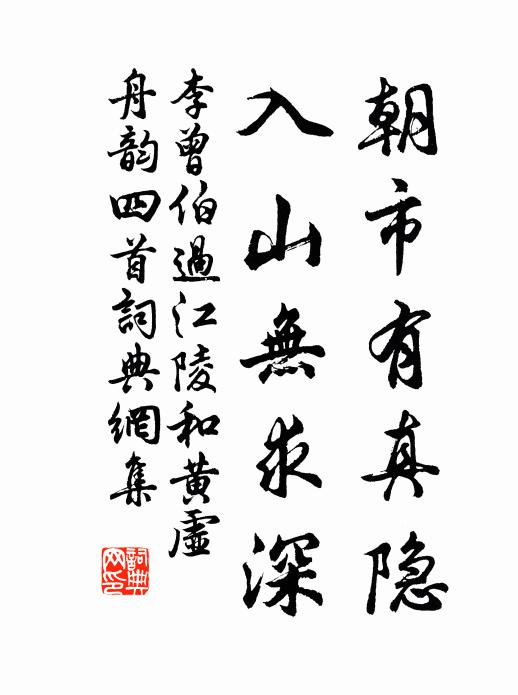 朝市有真隐
入山無求深
李曾伯過江陵和黄虛
舟韵四首詞典網集
詞典網印